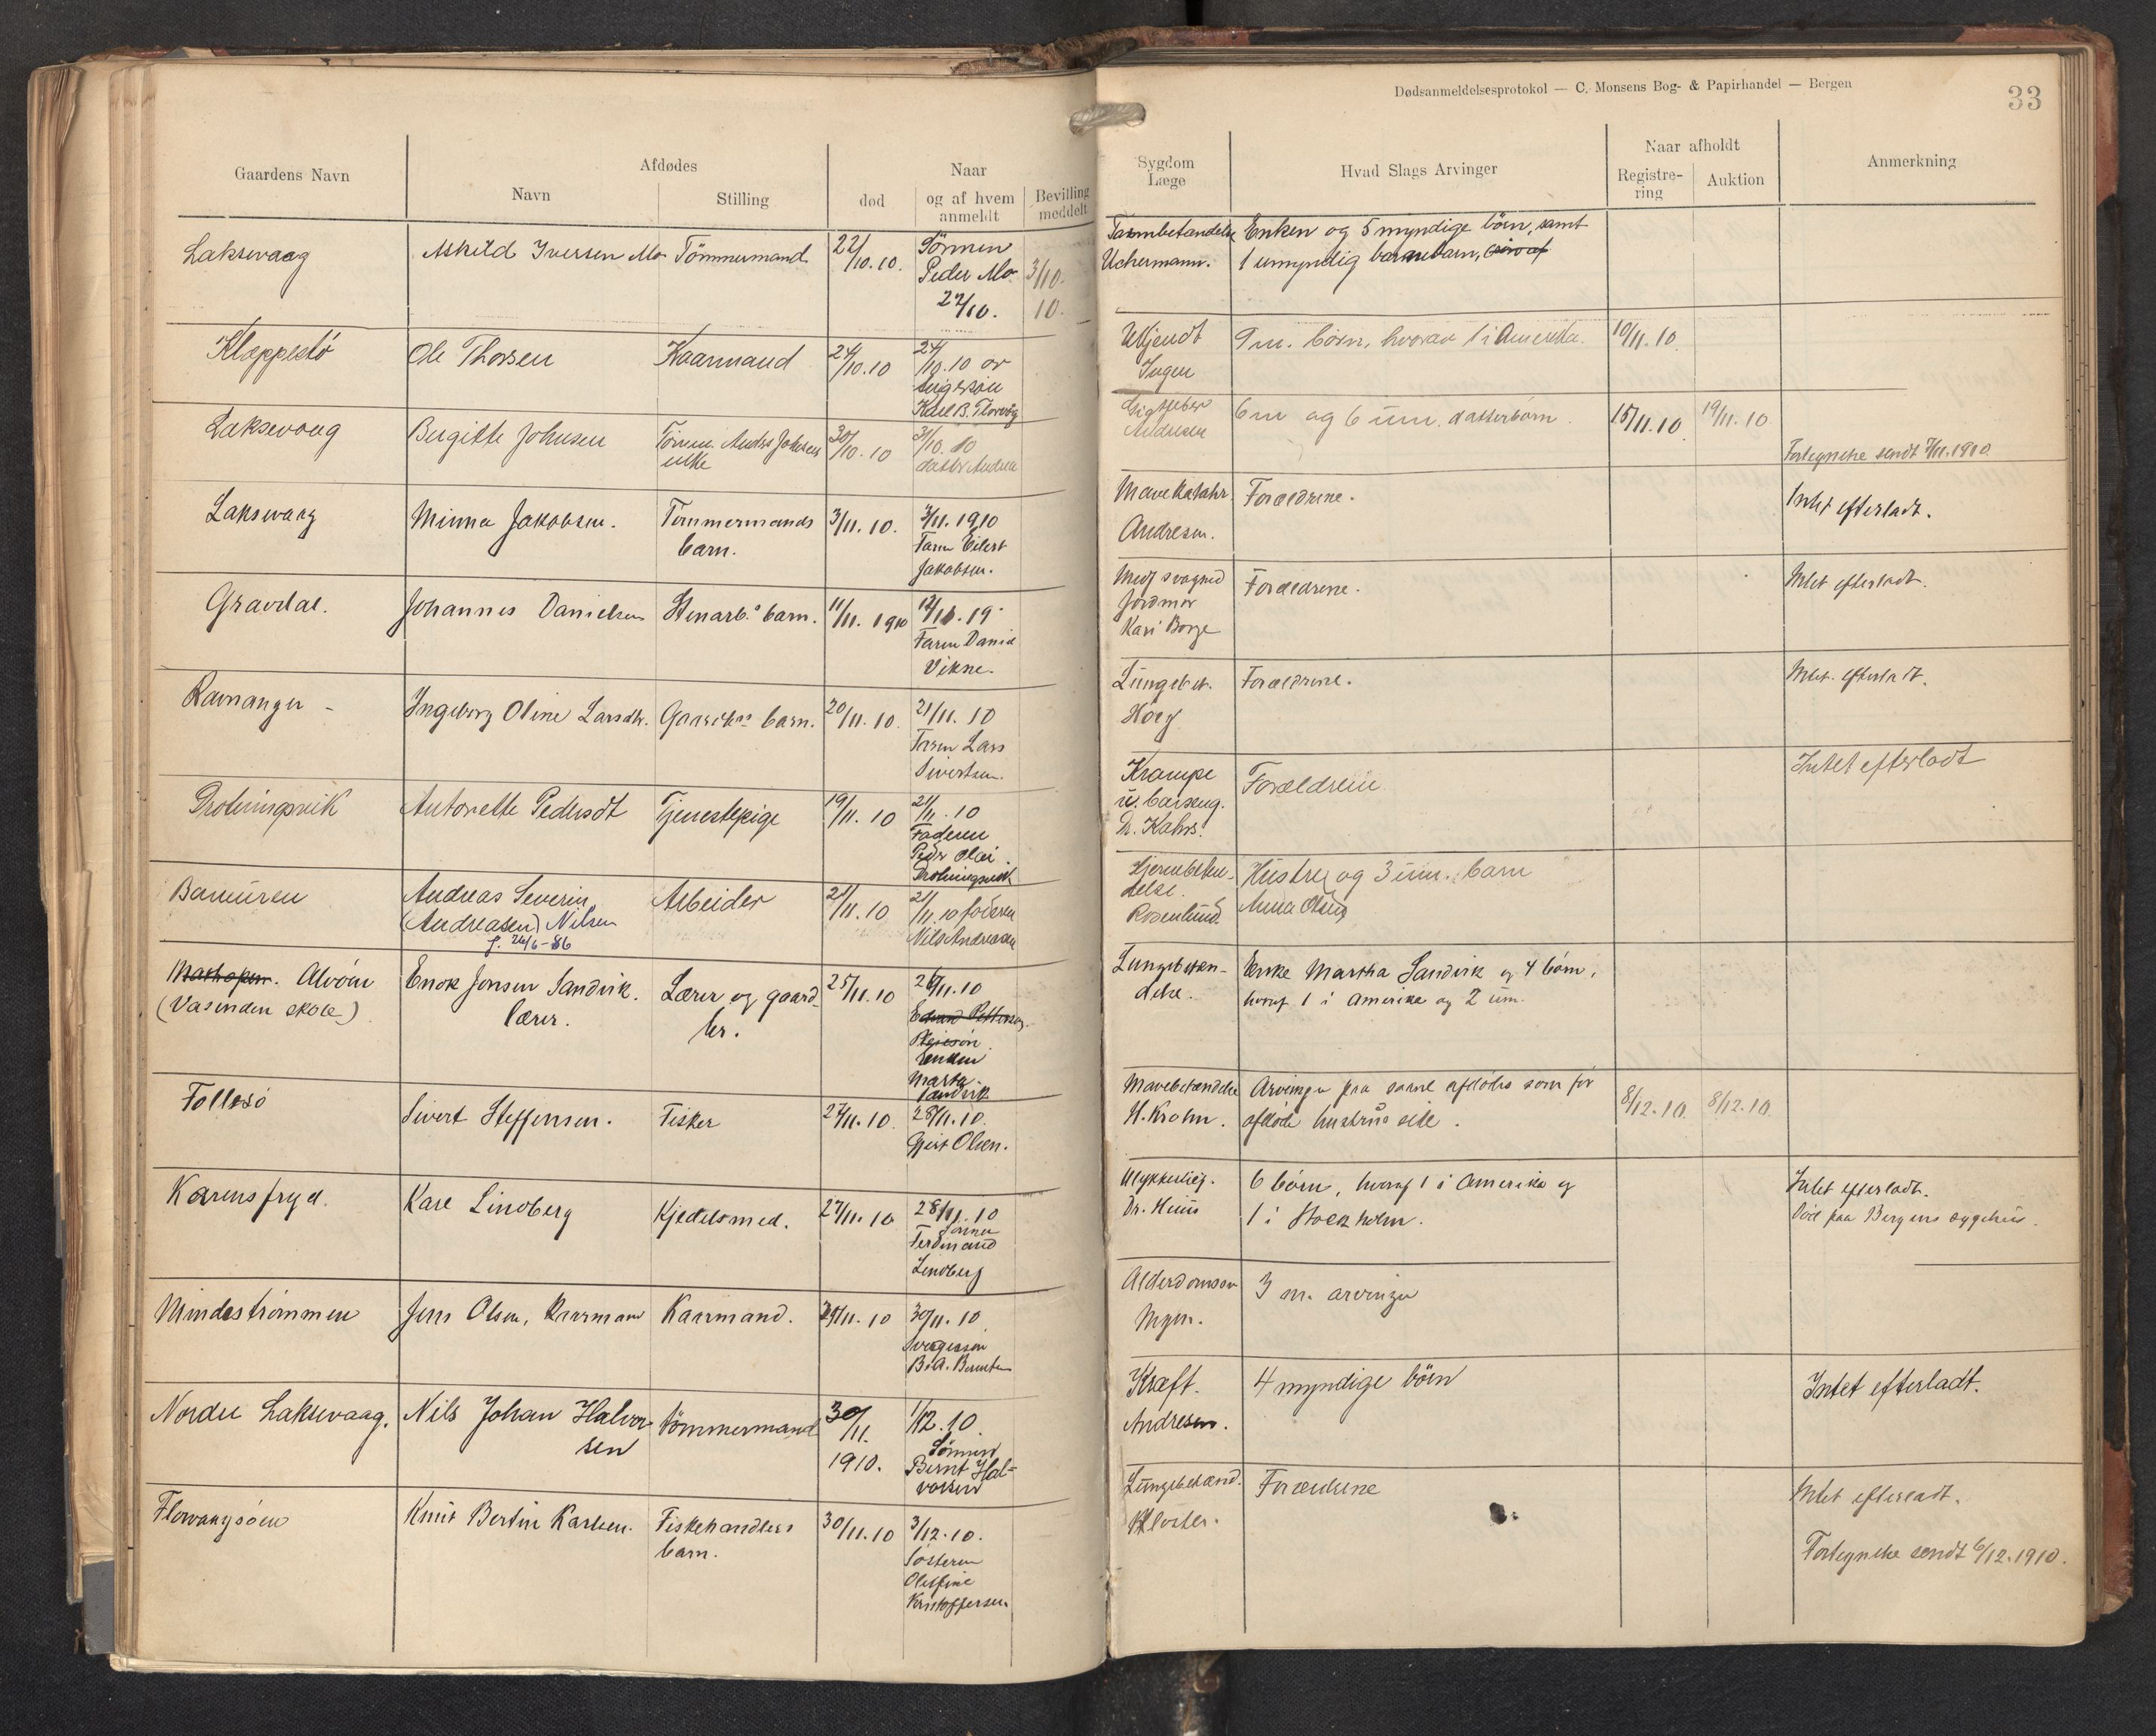 Dødsanmeldelsesprotokol — C. Monsens Bog- & Papirhandel — Bergen
33
Gaardens Navn
Afdødes
Navn
Stilling
død
Naar
og af hvem
anmeldt
Bevilling
meddelt
Sygdom
Læge
Hvad Slags Arvinger
Naar afholdt
Registre-
ring
Auktion
Anmerkning
Laksevaag
Askild Iversen Mo
Tömmermand
22/10.10.
Sönnen
Peder Mo
22/10.
3/10.
10.
Tarmbetændelse
Uchermann.
Enken og 5 myndige börn, samt
1 umyndig barnebarn,
Kleppestö
Ole Thorsen
Kaarmand
24/10.10
24/10.10 av
svigersön
Karl B. Florvåg
Ukjendt
Ingen
9 m. börn, hvorav 1 i Amerika.
10/11.10
Laksevaag
Birgitte Johnsen
Tömm. Anders Johnsens
enke
30/10.10
31/10.10
datter Andrea
Gigtfeber
Andresen
6 m og 6 um. datterbörn.
15/11.10
19/11.10
Fortegnelse sendt 7/11.1910.
Laksevaag
Minna Jakobsen.
Tömmermands
barn.
3/11.10.
3/11.1910
Faren Eilert
Jakobsen.
Mavekatahr.
Andresen.
Forældrene.
Intet efterladt.
Gravdal.
Johannes Danielsen
Stenarb.s barn.
11/11.1910
12/11.19
Faren Daniel
Vikne.
Medf svaghed
Jordmor
Kari Borge
Forældrene.
Intet efterladt.
Ravnanger -
Ingeborg Oline Larsdtr.
Gaardbrs barn.
20/11.10.
21/11.10
Faren Lars
Sivertsen.
Lungebet.
Höeg
Forældrene.
Intet efterladt.
Drotningsvik
Antonette Pedersdt
Tjenestepige
19/11.10
21/11.10
Faderen
Peder Olai
Drotningsvik
Krampe
u. barseng.
Dr. Kahrs.
Forældrene
Intet efterladt
Andreas Severin
(Andreasen) Nilsen
f. 26/6-86
Arbeider
21/11.10
21/11.10 faderen
Nils Andreasen
Hjernebetæn-
delse.
Rosenlund.
Hustru og 3 um. barn
Anna Olsen
Alvöen
(Vasenden skole)
Enok Jensen Sandvik.
lærer.
Lærer og gaard-
br.
25/11.10
26/11.10
Enken
Marta
Sandvik
Lungebetæn-
delse.
Enke Martha Sandvik og 4 börn,
hvoraf 1 i Amerika og 2 um.
Follesö
Sivert Steffensen.
Fisker
27/11.10.
28/11.10.
Gjert Olsen.
Mavebetændelse
H. Krohn.
Arvinger paa saavel afdødes som før
afdøde hustrus side.
8/12.10.
8/12.10.
Karensfryd.
Karl Lindberg
Kjedelsmed.
27/11.10
28/11.10
Sönnen
Ferdinand
Lindberg
Ulykkestilf.
Dr. Huus
6 börn, hvoraf 1 i Amerika og
1 i Stockholm.
Intet efterladt.
Död paa Bergens sygehus.
Mindeströmmen
Jens Olsen, Kaarmand
Kaarmand.
29/11.10
30/11.10.
Svigersön
B. A. Berntsen
Alderdomssv
Ingen.
3 m. arvinger
Nordre Laksevaag.
Nils Johan Halvor-
sen
Tömmermand
30/11.
1910.
1/12.10.
Sönnen
Bernt Hal-
vorsen
Kræft.
Andresen.
4 myndige börn
Intet efterladt.
Florvaagsöen
Knut Bertin Karlsen.
Fiskehandlers
barn.
30/11.10
3/12.10.
Sösteren
Oleffine
Kristoffersen
Lungebetænd.
Kloster.
Forældrene
Intet efterladt.
Fortegnelse sendt 6/12.1910.